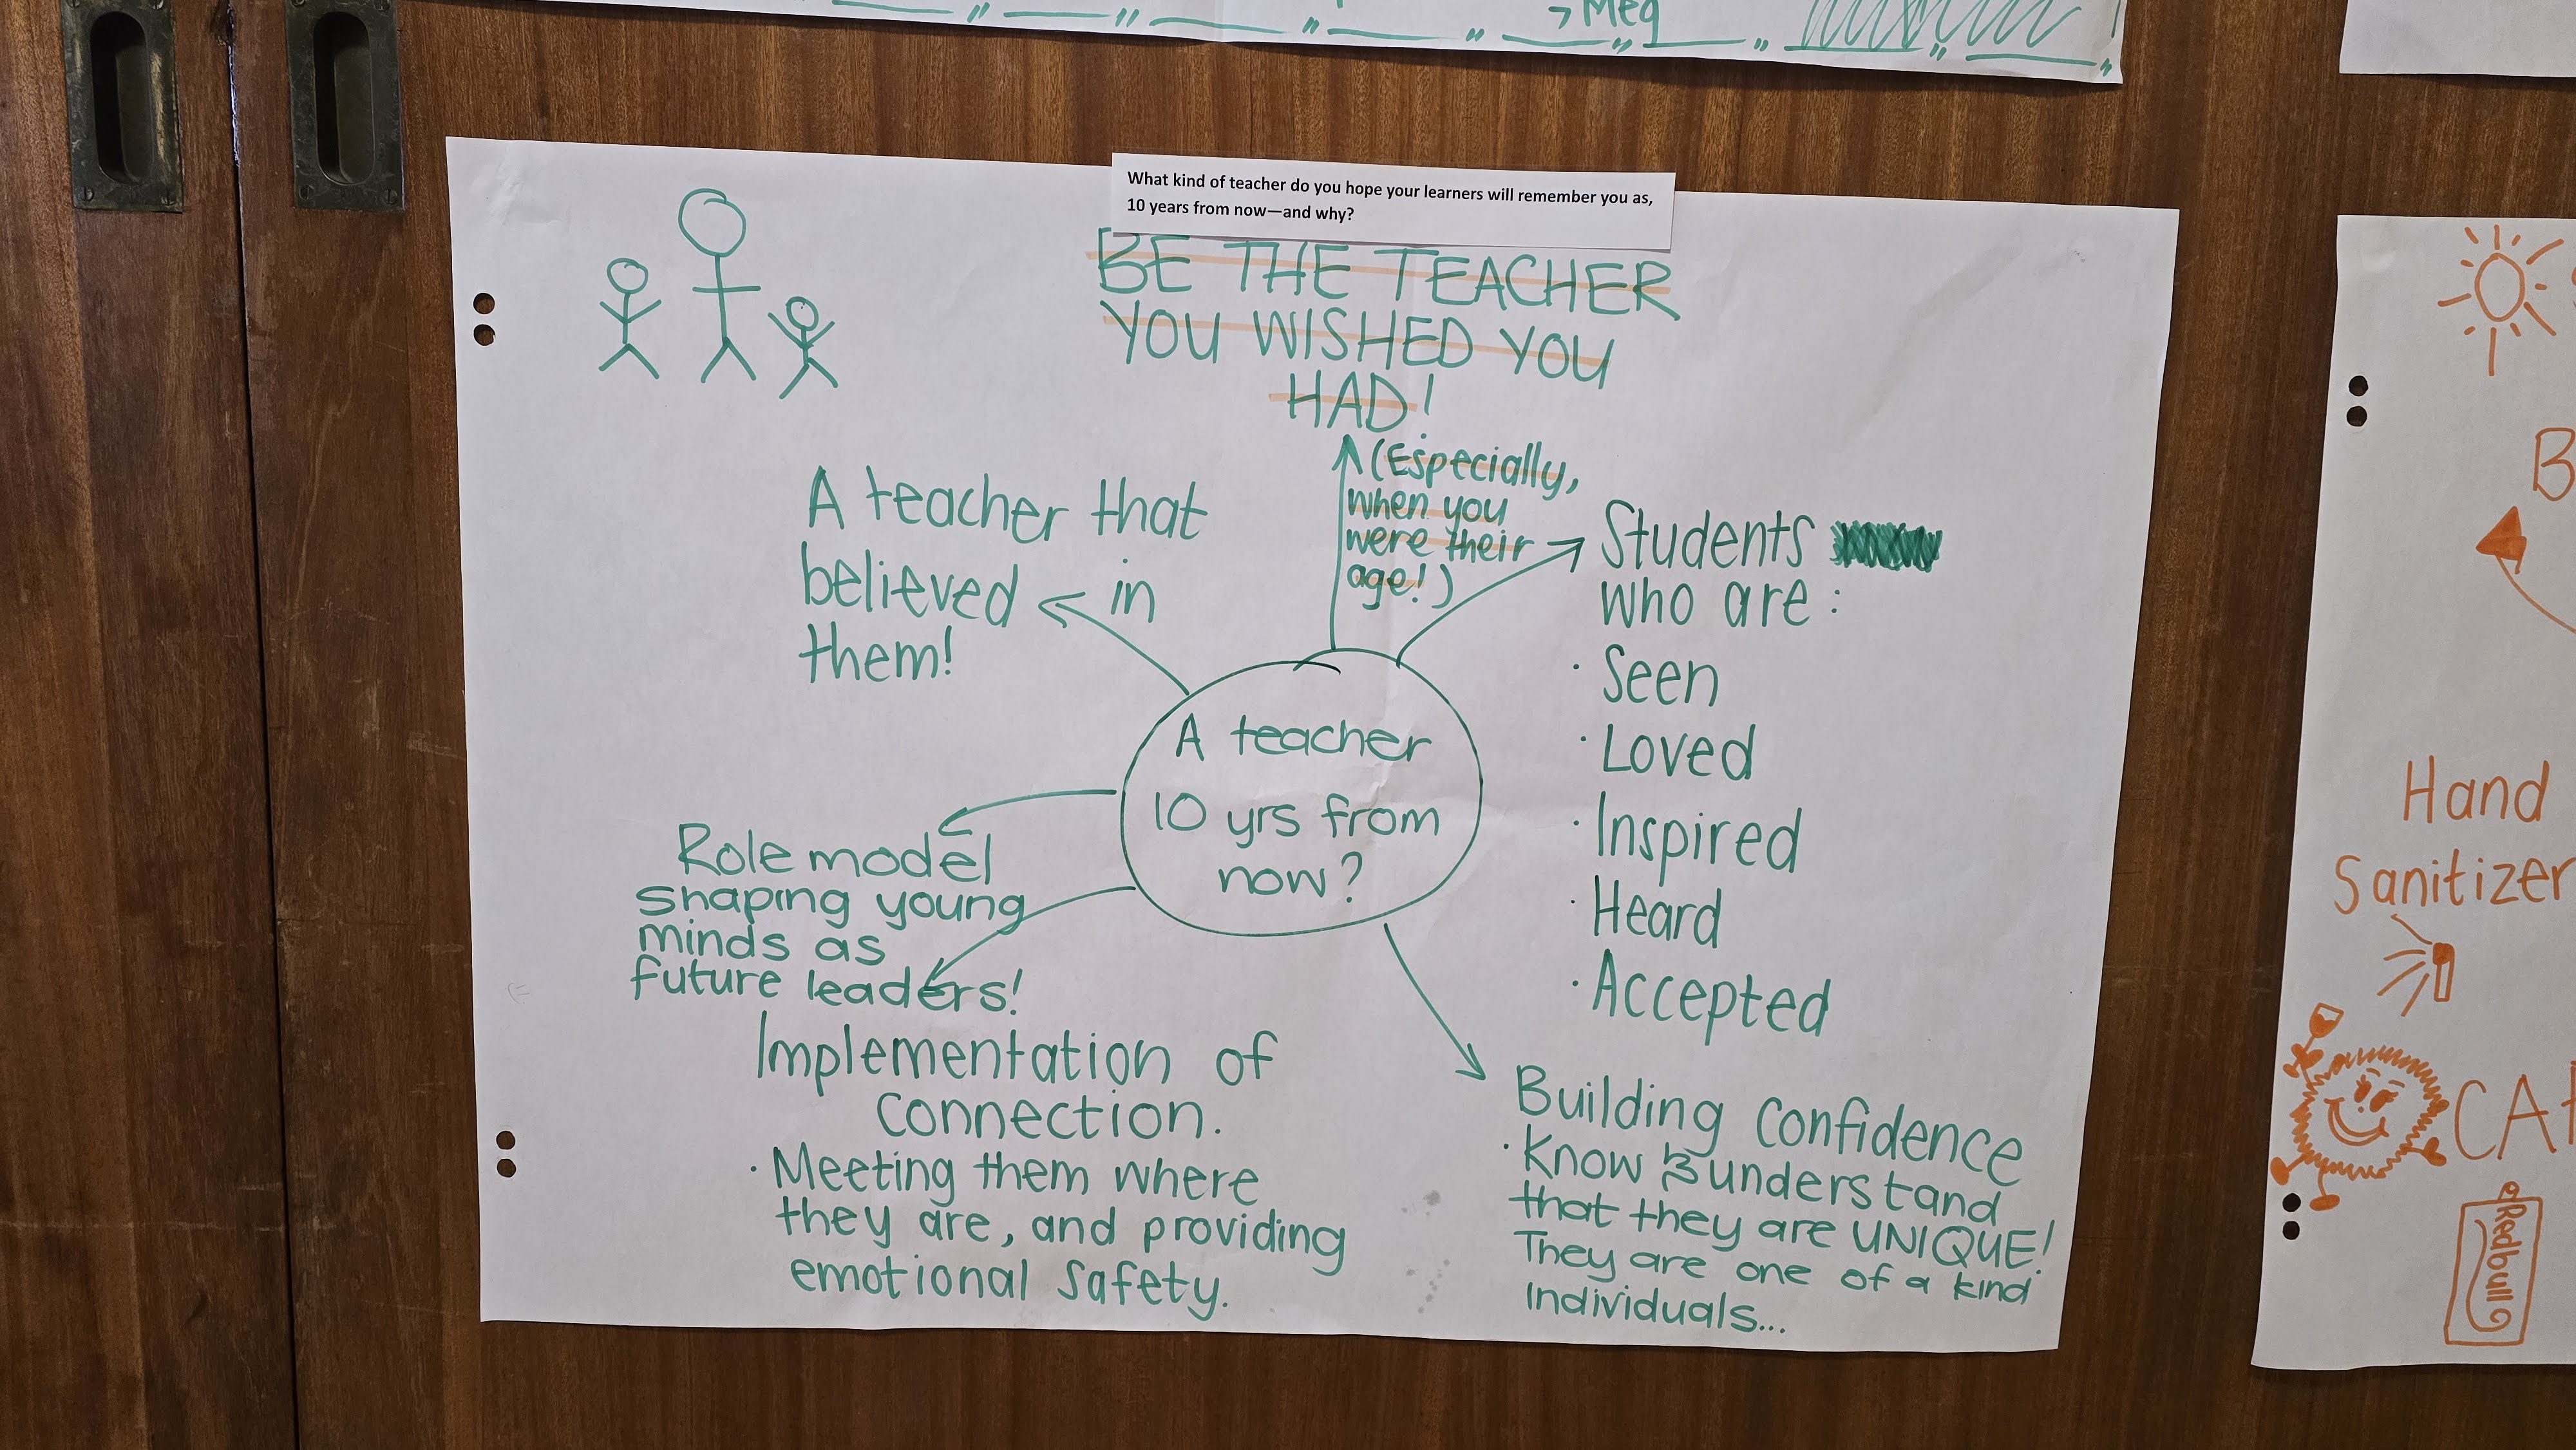 Meg
What kind of teacher do you hope your learners will remember you as,
10 years from now—and why?
BE THE TEACHER
YOU WISHED YOU
HAD!
(Especially,
when you
were their
age!)
A teacher that
believed in
them!
Students
who are:
· Seen
· Loved
· Inspired
· Heard
· Accepted
A teacher
10 yrs from
now?
Role model
shaping young
minds as
future leaders!
Implementation of
connection.
· Meeting them where
they are, and providing
emotional safety.
Building confidence
· Know & understand
that they are UNIQUE!
They are one of a kind
individuals...
B
Hand
Sanitizer
CA
Redbull